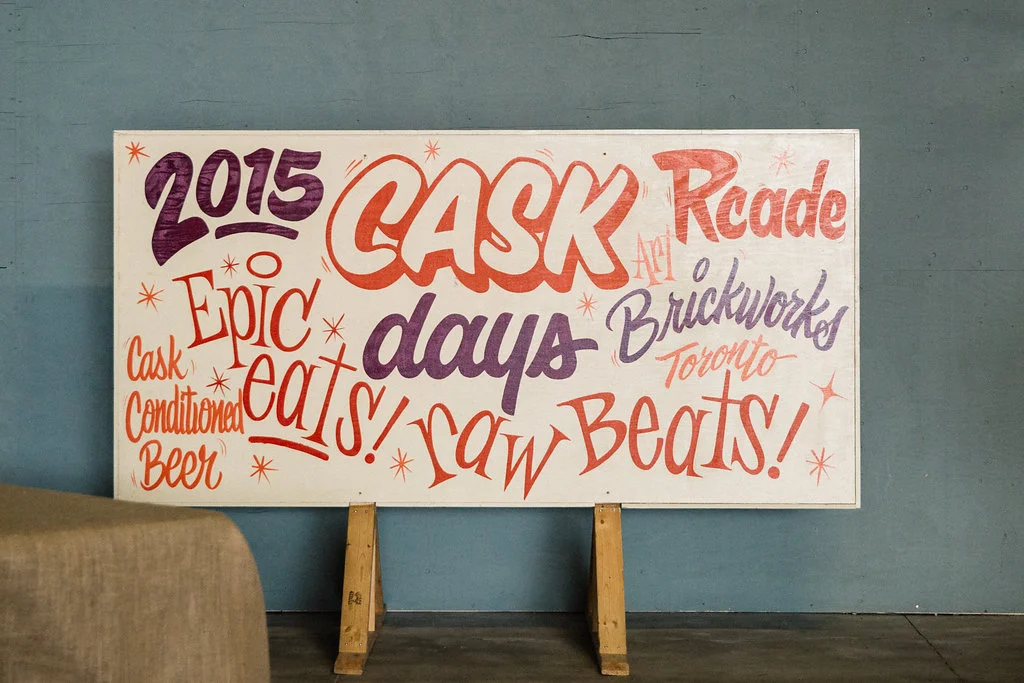 2015
CASK
days
Art
Rcade
Brickworks
Toronto
Epic
eats!
Cask
Conditioned
Beer
raw Beats!